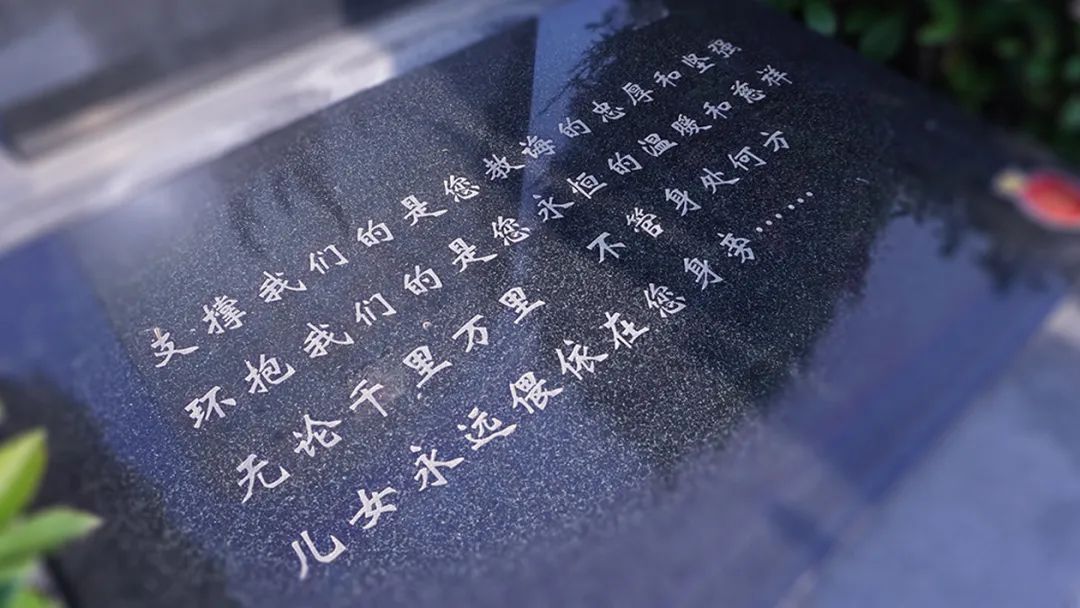 支撑我们的是您教诲的忠厚和坚强
环抱我们的是您永恒的温暖和慈祥
无论千里万里 不管身处何方
儿女永远偎依在您身旁……